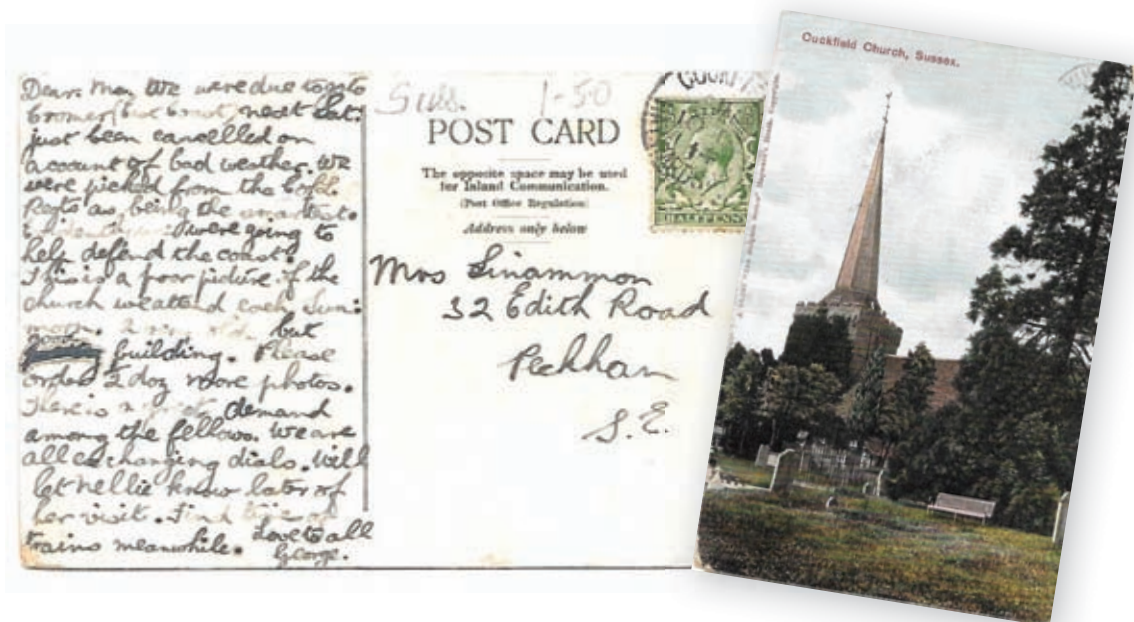 Dear. Ma, We were due to go to
Cromer (but b out) next Sat:
just been cancelled on
account of bad weather. We
were picked from the
Regts as being the smartest
were going to
help defend the coast.
This is a poor picture of the
church we attend each Sun:
morn. but
good building. Please
order 2 doz more photos.
There is a demand
among the fellows. We are
all exchanging dials. Will
let Nellie know later of
her visit. Find
trains meanwhile. Love to all
George.
Suss. 1-50
POST CARD
The opposite space may be used
for Inland Communication.
(Post Office Regulation)
Address only below
HALFPENNY
Mrs Sinammon
32 Edith Road
Peckham
S.E.
Cuckfield Church, Sussex.